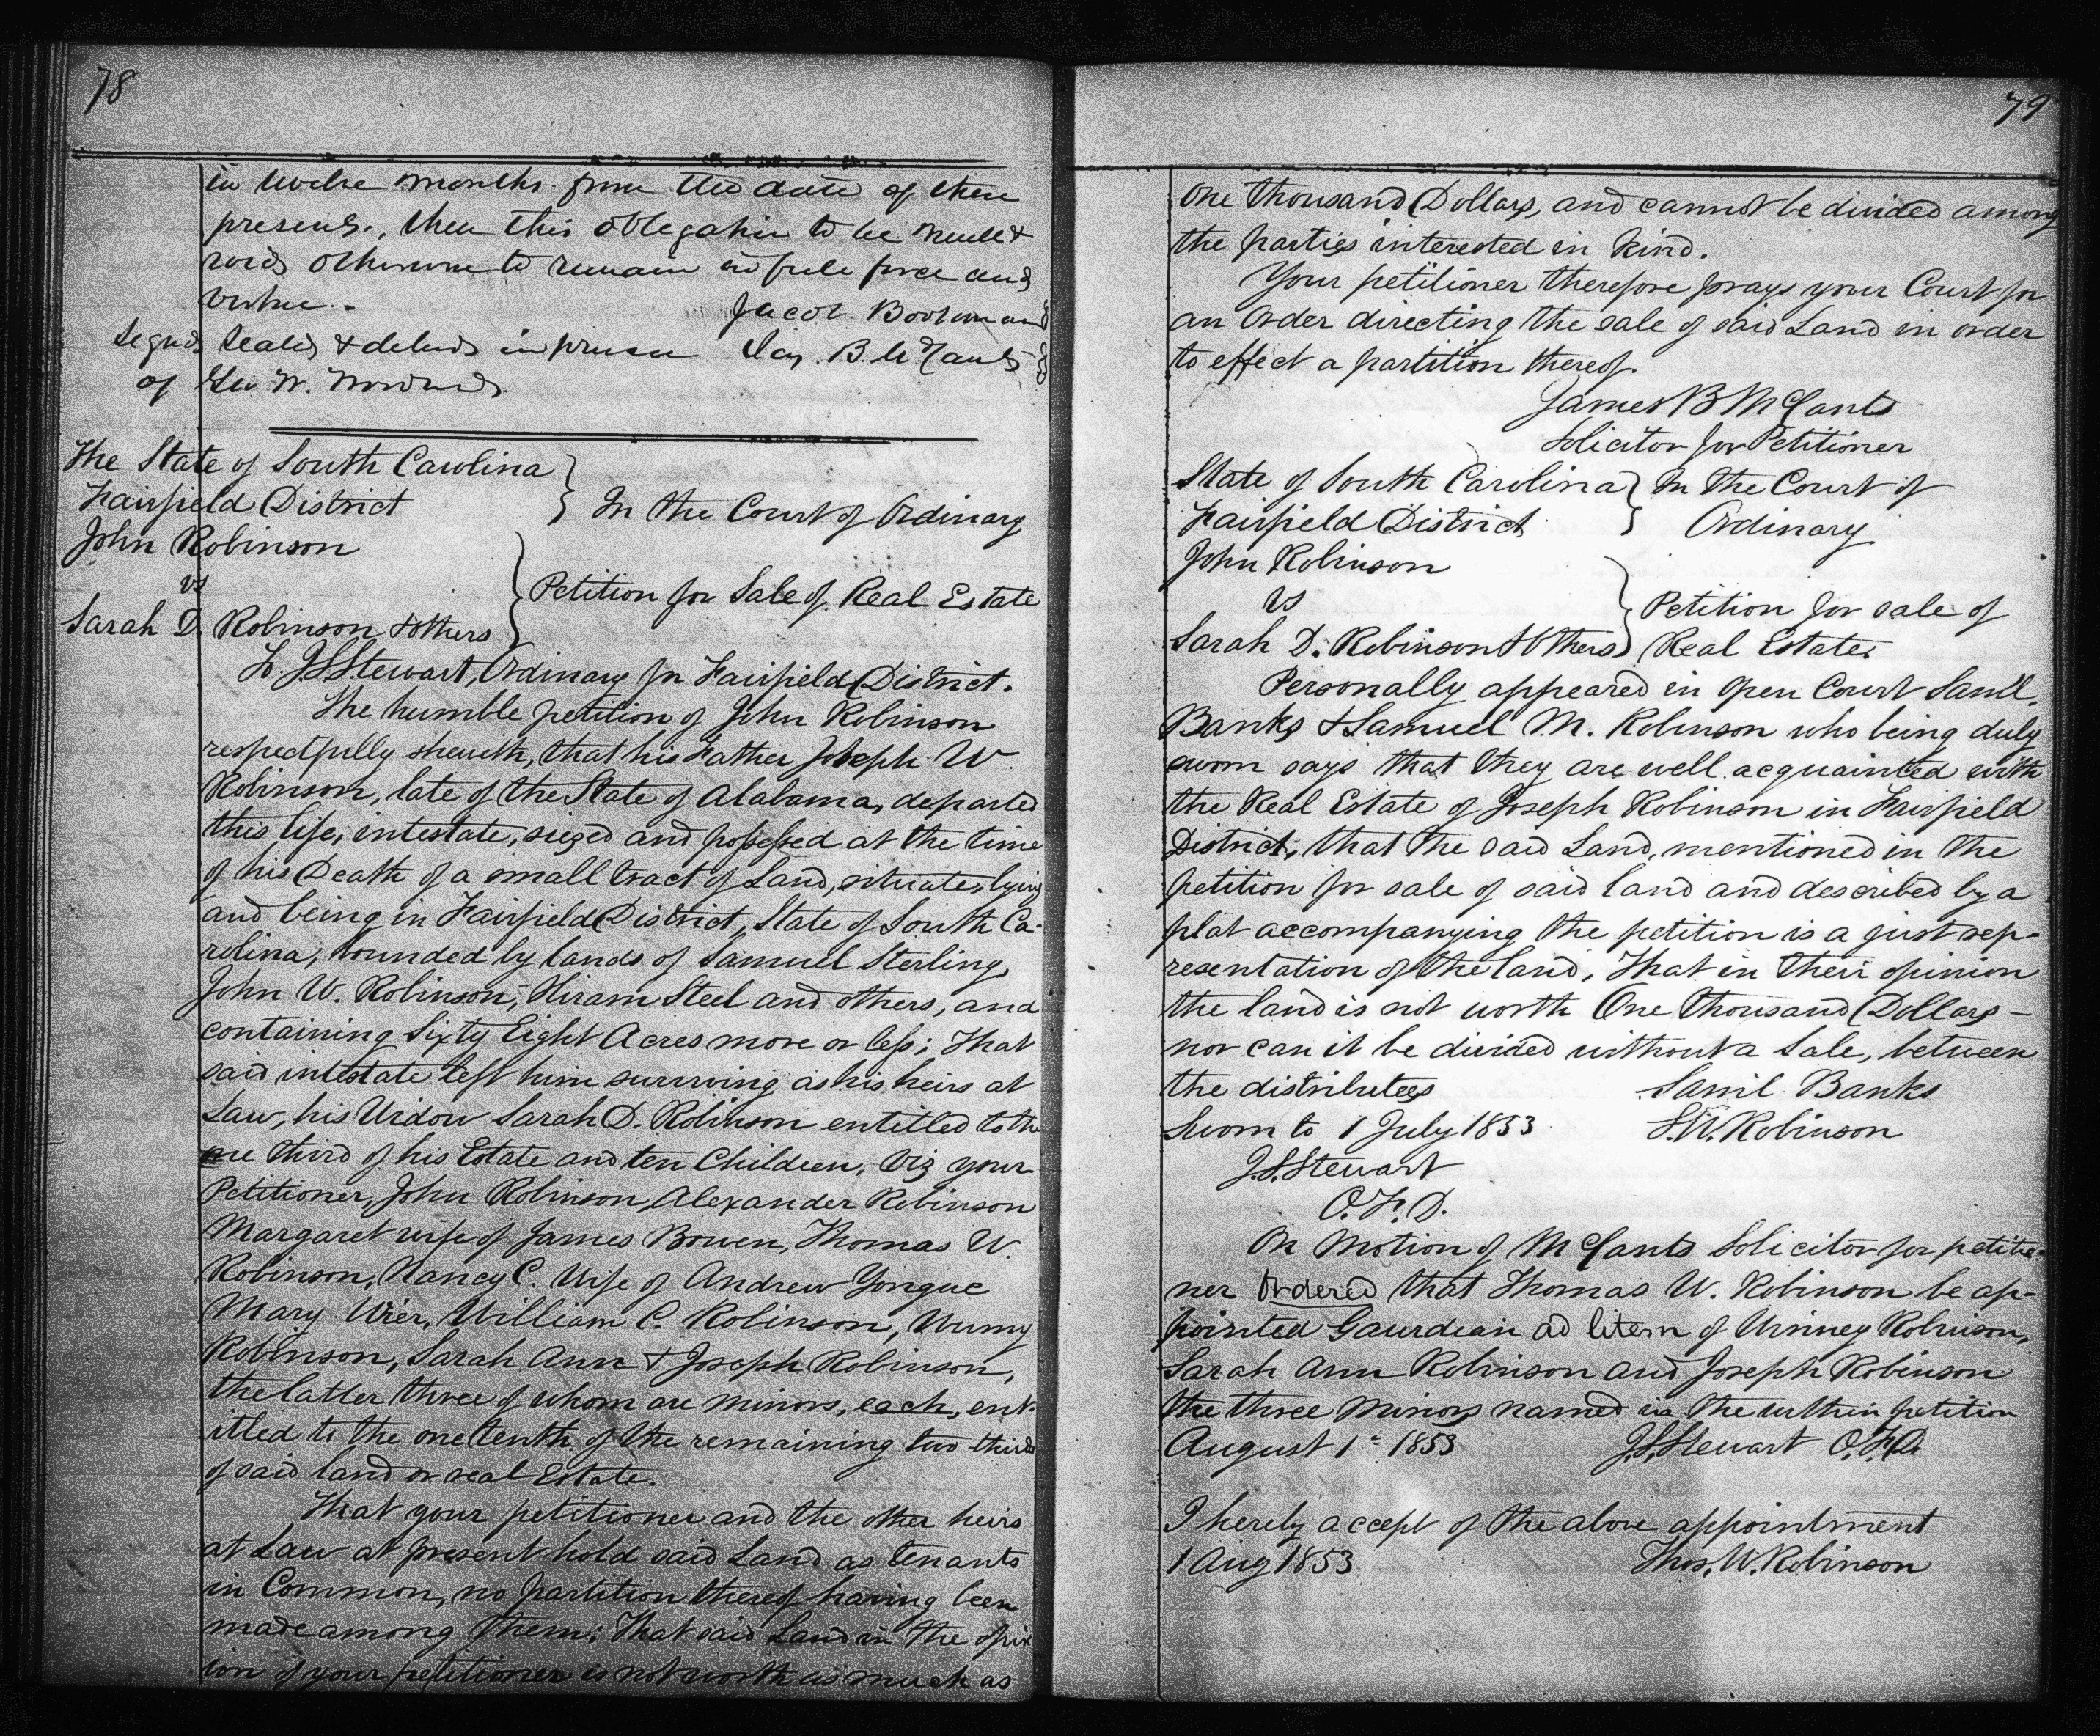 78
in twelve months from the date of these
presents, then this obligation to be null &
void otherwise to remain in full force and
virtue.
Jacob Bookman
Signed Sealed & delivd in presence Jas. B. McCants
of Geo W.
The State of South Carolina
Fairfield District
In the Court of Ordinary
John Robinson
vs
Sarah D. Robinson & others
Petition for Sale of Real Estate
To J S Stewart, Ordinary for Fairfield District.
The humble petition of John Robinson
respectfully sheweth, that his Father Joseph W
Robinson, late of the State of Alabama, departed
this life, intestate, siezed and possessed at the time
of his Death of a small tract of Land, situate, lying
and being in Fairfield District, State of South Ca-
rolina, bounded by lands of Samuel Sterling,
John W. Robinson, Hiram Steel and others, and
containing Sixty Eight Acres more or less; That
said intestate left him surviving as his heirs at
Law, his Widow Sarah D. Robinson entitled to the
one third of his Estate and ten Children, Viz your
Petitioner, John Robinson, Alexander Robinson
Margaret wife of James Bowen, Thomas W.
Robinson, Nancy C. Wife of Andrew Yongue
Mary Wier, William C. Robinson, Winny
Robinson, Sarah Ann & Joseph Robinson,
the latter three of whom are minors, each, ent-
itled to the one tenth of the remaining two thirds
of said land or real Estate.
That your petitioner and the other heirs
at Law at present hold said Land as tenants
in Common, no partition thereof having been
made among them; That said Land in the opin
ion of your petitioner is not worth as much as
79
One thousand Dollars, and cannot be divided among
the parties interested in kind.
Your petitioner therefore prays your Court for
an Order directing the sale of said Land in order
to effect a partition thereof.
James B McCants
Solicitor for Petitioner
State of South Carolina
Fairfield District
In the Court of
Ordinary
John Robinson
vs
Sarah D. Robinson & Others
Petition for sale of
Real Estate.
Personally appeared in open Court Saml.
Banks & Samuel M. Robinson who being duly
sworn says that they are well acquainted with
the Real Estate of Joseph Robinson in Fairfield
District, that the said Land, mentioned in the
petition for sale of said land and described by a
plat accompanying the petition is a just rep-
resentation of the land, That in their opinion
the land is not worth One thousand Dollars —
nor can it be divided without a Sale, between
the distributees
Saml Banks
Sworn to 1 July 1853
S. M. Robinson
J. S. Stewart
O. F. D.
On Motion of McCants Solicitor for petitio-
ner Ordered that Thomas W. Robinson be ap-
pointed Gaurdian ad litem of Winney Robinson,
Sarah Ann Robinson and Joseph Robinson
the three Minors named in the within petition
August 1st 1853 J. S. Stewart O. F. D.
I hereby accept of the above appointment
1 Aug 1853 Thos. W. Robinson